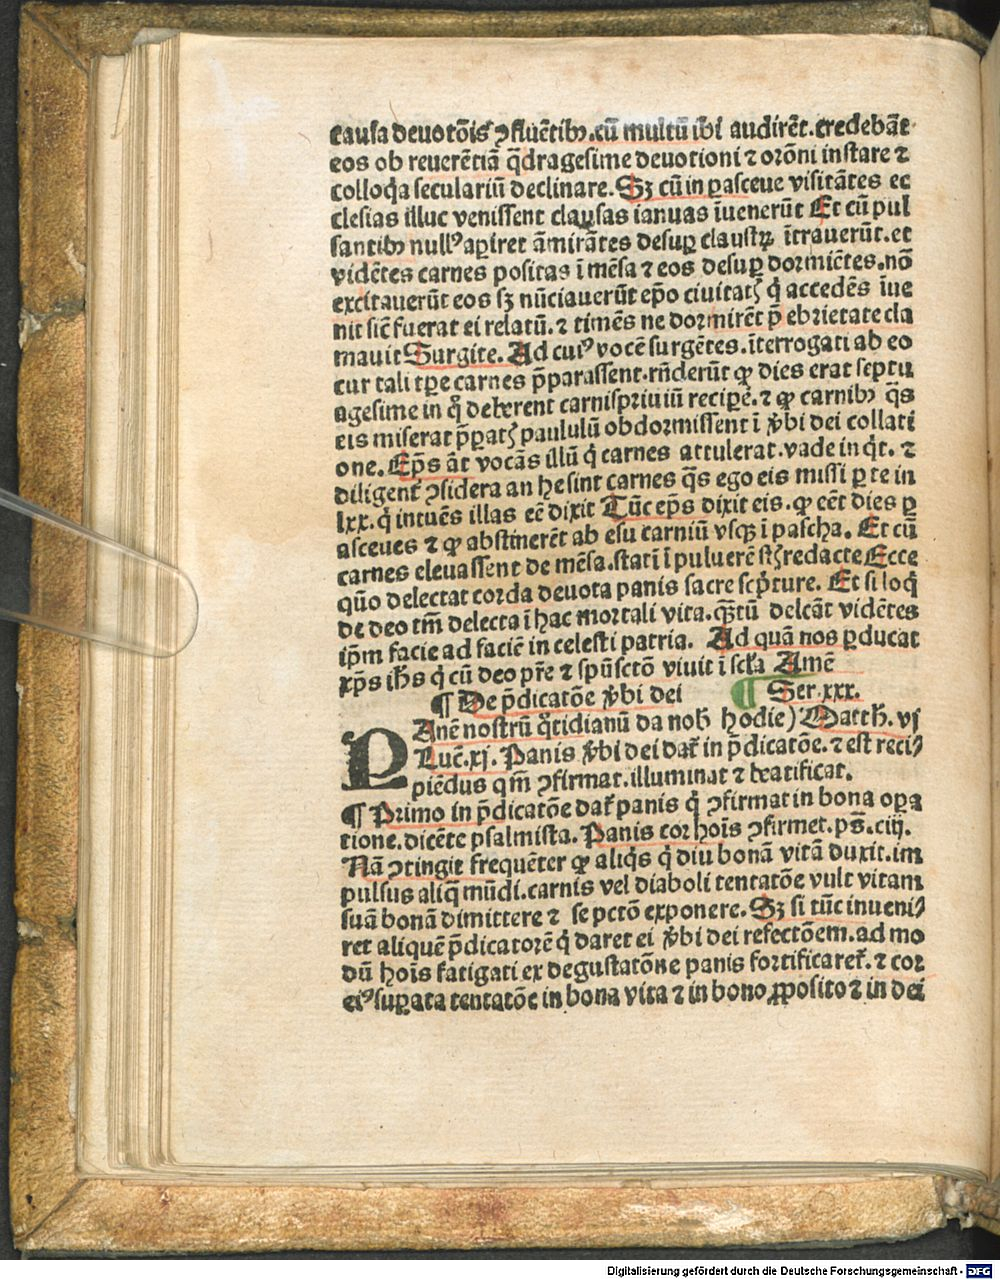 causa deuotōis ꝯfluētibꝯ.cū multū ibi audirēt.credebāt
eos ob reuerētiā q̄dragesime deuotioni ⁊ orōni instare ⁊
colloq̄a seculariū declinare. Sꝫ cū in pasceue visitātes ec
clesias illuc venissent clausas ianuas īuenerūt Et cū pul
santibꝯ nullꝰ aꝑiret āmirātes desuꝑ claustꝝ ītrauerūt.et
vidētes carnes positas ī mēsa ⁊ eos desuꝑ dormiētes.nō
excitauerūt eos sꝫ nūciauerūt ep̄o ciuitatꝭ q̇ accedēs īue
nit sic̄ fuerat ei relatū.⁊ timēs ne dormirēt p̄ ebrietate cla
mauit Surgite. Ad cuiꝰ vocē surgētes.īterrogati ab eo
cur tali tꝑe carnes p̄parassent.rn̄derūt ꝙ dies erat septu
agesime in q̄ deberent carnispriuiū reciꝑe.⁊ ꝙ carnibꝯ q̄s
eis miserat p̄ꝑatꝭ paululū obdormissent ī v̄bi dei collati
one. Ep̄s āt vocās illū q̇ carnes attulerat.vade inq̇t. ⁊
diligent̄ ꝯsidera an he sint carnes q̄s ego eis missi ꝑ te in
lxx. q̇ intuēs illas eē dixit Tūc ep̄s dixit eis.ꝙ eēt dies ꝑ
asceues ⁊ ꝙ abstinerēt ab esu carniū vsqꝫ ī pascha. Et cū
carnes eleuassent de mēsa.statī ī puluerē sꝭ redacte Ecce
quō delectat corda deuota panis sacre scp̄ture. Et si loq̇
de deo tm̄ delecta ī hac mortali vita.qꝫtū delcāt vidētes
ip̄m facie ad faciē in celesti patria. Ad quā nos ꝑducat
xp̄s ih̄s q̇ cū deo pr̄e ⁊ spūsctō viuit ī scl̄a Amē
¶ De p̄dicatōe v̄bi dei ¶ Ser.xxx.
PAnē nostrū q̄tidianū da nob̄ hodie) Matth̄. vj
Luc̄.xj. Panis v̄bi dei dat̄ in p̄dicatōe.⁊ est reci⸗
piēdus qm̄ ꝯfirmat.illuminat ⁊ beatificat.
¶ Primo in p̄dicatōe dat̄ panis q̇ ꝯfirmat in bona oꝑa
tione.dicēte psalmista. Panis cor hoīs ꝯfirmet.ps̄.ciij.
Nā ꝯtingit frequēter ꝙ aliq̇s q̇ diu bonā vitā duxit.im
pulsus aliq̄ mūdi.carnis vel diaboli tentatōe vult vitam
suā bonā dimittere ⁊ se pctō exponere. Sꝫ si tūc inueni⸗
ret aliquē p̄dicatorē q̇ daret ei v̄bi dei refectōem.ad mo
dū hoīs fatigati ex degustatōne panis fortificaret̄. ⁊ cor
eiꝰ suꝑata tentatōe in bona vita ⁊ in bono ꝓposito ⁊ in dei
Digitalisierung gefördert durch die Deutsche Forschungsgemeinschaft - DFG